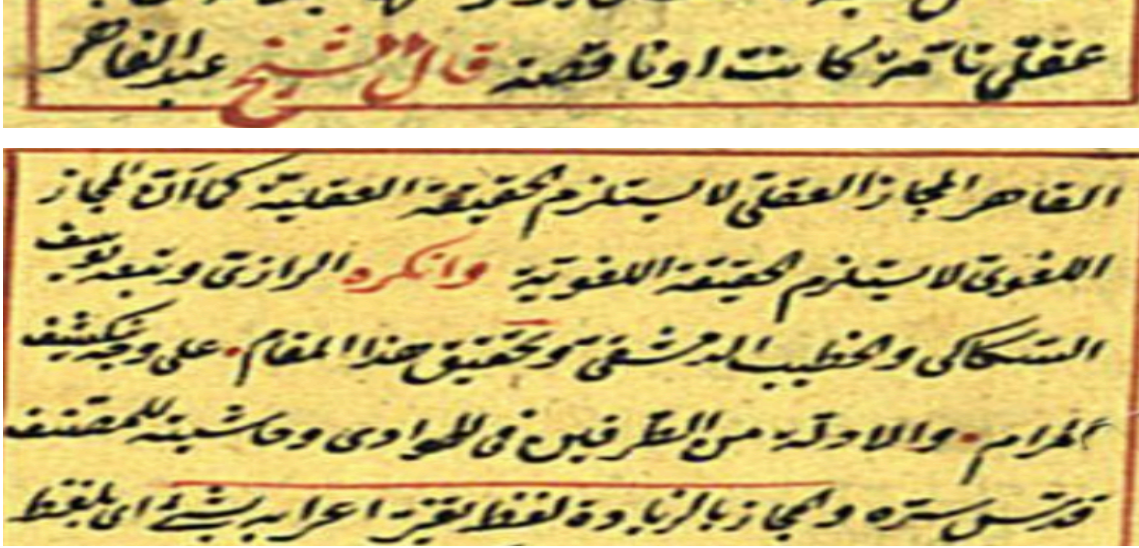 عقلي تامة كانت او ناقصة قال الشيخ عبد القاهر
القاهر المجاز العقلي لا يستلزم الحقيقة العقلية كما ان المجاز
اللغوي لا يستلزم الحقيقة اللغوية وانكره الرازي وتبعه يوسف
السكاكي والخطيب الدمشقي وتحقيق هذا المقام على وجه ينكشف
المرام والادلة من الطرفين في الهوادى وحاشيته للمصنف
قدس سره والمجاز بالزيادة لفظ تغير اعرابه بشئ اى بلفظ